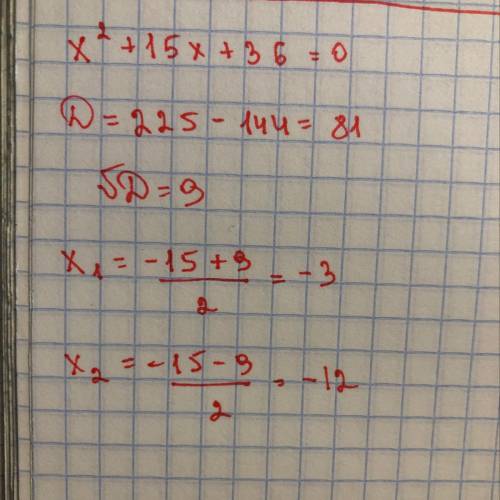 x² + 15x + 36 = 0
D = 225 - 144 = 81
√D = 9
x₁ = (-15 + 9)/2 = -3
x₂ = (-15 - 9)/2 = -12